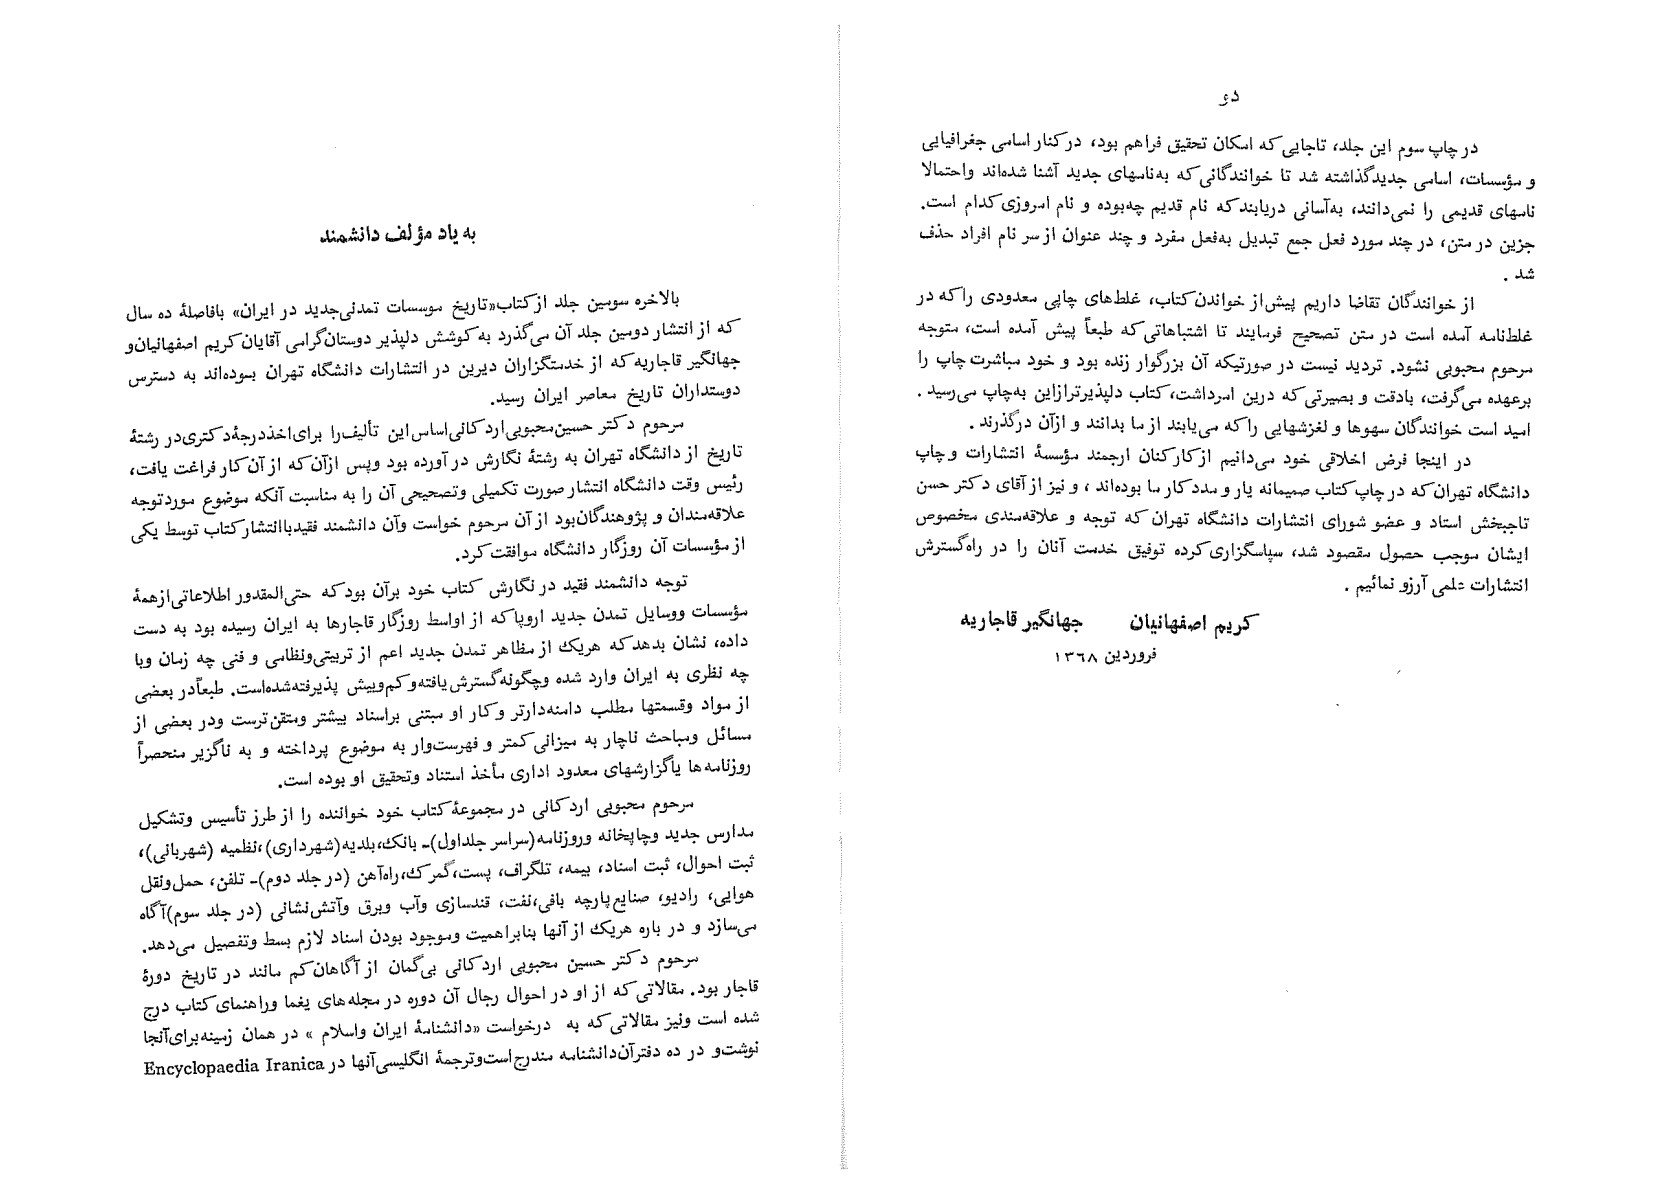 دو
در چاپ سوم این جلد، تاجایی‌که امکان تحقیق فراهم بود، درکنار اسامی جغرافیایی
و مؤسسات، اسامی جدیدگذاشته شد تا خوانندگانی‌که به‌نامهای جدید آشنا شده‌اند واحتمالا
نامهای قدیمی را نمی‌دانند، به‌آسانی دریابندکه نام قدیم چه‌بوده و نام امروزی‌کدام است.
جزین در متن، در چند مورد فعل جمع تبدیل به‌فعل مفرد و چند عنوان از سر نام افراد حذف
شد .
از خوانندگان تقاضا داریم پیش‌از خواندن‌کتاب، غلط‌های چاپی معدودی راکه در
غلط‌نامه آمده است در متن تصحیح فرمایند تا اشتباهاتی‌که طبعاً پیش آمده است، متوجه
مرحوم محبوبی نشود. تردید نیست در صورتیکه آن بزرگوار زنده بود و خود مباشرت چاپ را
برعهده می‌گرفت، بادقت و بصیرتی که درین امرداشت، کتاب دلپذیرترازاین به‌چاپ می‌رسید .
امید است خوانندگان سهوها و لغزشهایی راکه می‌یابند از ما بدانند و ازآن درگذرند .
در اینجا فرض اخلاقی خود می‌دانیم ازکارکنان ارجمند مؤسسهٔ انتشارات و چاپ
دانشگاه تهران‌که در چاپ‌کتاب صمیمانه یار و مددکار ما بوده‌اند ، و نیز از آقای دکتر حسن
تاجبخش استاد و عضو شورای انتشارات دانشگاه تهران که توجه و علاقه‌مندی مخصوص
ایشان موجب حصول مقصود شد، سپاسگزاری‌کرده توفیق خدمت آنان را در راه‌گسترش
انتشارات علمی آرزو نمائیم .
کریم اصفهانیان جهانگیر قاجاریه
فروردین ۱۳۶۸
به یاد مؤلف دانشمند
بالاخره سومین جلد ازکتاب«تاریخ موسسات تمدنی‌جدید در ایران» بافاصلهٔ ده سال
که از انتشار دومین جلد آن می‌گذرد به‌کوشش دلپذیر دوستان‌گرامی آقایان‌کریم اصفهانیان‌و
جهانگیر قاجاریه‌که از خدمتگزاران دیرین در انتشارات دانشگاه تهران بوده‌اند به دسترس
دوستداران تاریخ معاصر ایران رسید.
مرحوم دکتر حسین‌محبوبی‌اردکانی‌اساس‌این تألیف‌را برای‌اخذدرجهٔ‌دکتری‌در رشتهٔ
تاریخ از دانشگاه تهران به رشتهٔ نگارش درآورده بود وپس ازآن‌که از آن‌کار فراغت یافت،
رئیس وقت دانشگاه انتشار صورت تکمیلی وتصحیحی آن را به مناسبت آنکه موضوع موردتوجه
علاقه‌مندان و پژوهندگان‌بود از آن مرحوم خواست وآن دانشمند فقیدباانتشارکتاب توسط یکی
از مؤسسات آن روزگار دانشگاه موافقت‌کرد.
توجه دانشمند فقید در نگارش کتاب خود برآن بودکه حتی‌المقدور اطلاعاتی‌ازهمهٔ
مؤسسات ووسایل تمدن جدید اروپاکه از اواسط روزگار قاجارها به ایران رسیده بود به دست
داده، نشان بدهدکه هریک از مظاهر تمدن جدید اعم از تربیتی‌ونظامی و فنی چه زمان وبا
چه نظری به ایران وارد شده وچگونه‌گسترش‌یافته‌وکم‌وبیش پذیرفته‌شده‌است. طبعاً‌در بعضی
از مواد وقسمتها مطلب دامنه‌دارتر وکار او مبتنی براسناد بیشتر ومتقن‌ترست ودر بعضی از
مسائل ومباحث ناچار به میزانی‌کمتر و فهرست‌وار به موضوع پرداخته و به ناگزیر منحصراً
روزنامه‌ها یاگزارشهای معدود اداری مأخذ استناد وتحقیق او بوده است.
مرحوم محبوبی اردکانی در مجموعهٔ‌کتاب خود خواننده را از طرز تأسیس وتشکیل
مدارس جدید وچاپخانه وروزنامه(سراسر جلداول)ـ بانک،بلدیه(شهرداری)،نظمیه (شهربانی)،
ثبت احوال، ثبت اسناد، بیمه، تلگراف، پست،گمرک،راه‌آهن (در جلد دوم)ـ تلفن، حمل‌ونقل
هوایی، رادیو، صنایع‌پارچه بافی،نفت، قندسازی وآب وبرق وآتش‌نشانی (در جلد سوم)آگاه
می‌سازد و در باره هریک از آنها بنابراهمیت وموجود بودن اسناد لازم بسط وتفصیل می‌دهد.
مرحوم دکتر حسین محبوبی اردکانی بی‌گمان از آگاهان‌کم مانند در تاریخ دورهٔ
قاجار بود. مقالاتی‌که از او در احوال رجال آن دوره در مجله‌های یغما وراهنمای‌کتاب درج
شده است ونیز مقالاتی‌که به درخواست «دانشنامهٔ ایران واسلام » در همان زمینه‌برای‌آنجا
نوشت‌و در ده دفترآن‌دانشنامه مندرج‌است‌وترجمهٔ انگلیسی‌آنها در Encyclopaedia Iranica